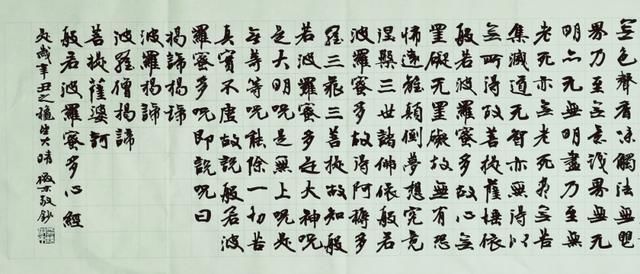 無色聲香味觸法無眼
界乃至無意識界無无
明亦无無明盡乃至無
老死亦無老死盡無苦
集滅道无智亦無得以
無所得故菩提薩埵依
般若波羅蜜多故心無
罣礙无罣礙故無有恐
怖遠離顛倒夢想究竟
涅槃三世諸佛依般若
波羅蜜多故得阿耨多
羅三藐三菩提故知般
若波羅蜜多是大神咒
是大明咒是無上咒是
無等等咒能除一切苦
真實不虛故說般若波
羅蜜多咒即說咒曰
揭諦揭諦
波羅揭諦
波羅僧揭諦
菩提薩婆訶
般若波羅蜜多心經
歲辛丑之穐 大晴 敬鈔